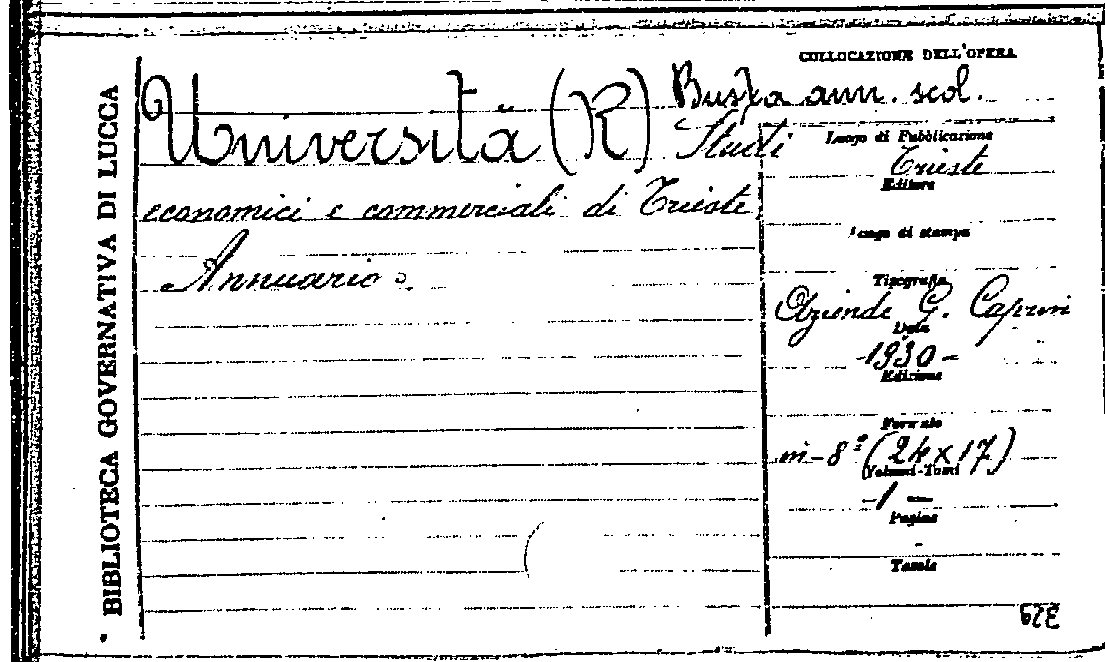 BIBLIOTECA GOVERNATIVA DI LUCCA
COLLOCAZIONE DELL'OPERA
Busta ann. scol.
Università (R) Studi
economici e commerciali di Trieste
Annuario.
Luogo di Pubblicazione
Trieste
Editore
Luogo di stampa
Tipografia
Aziende G. Caprin
Data
-1930-
Edizione
Formato
in-8° (24x17)
Volumi-Tomi
-1-
Pagine
-
Tavole
329